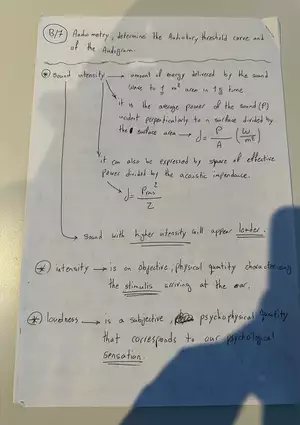 B/7 Audiometry, determine the Auditory threshold curve and
of the Audiogram.
* Sound intensity → amount of energy delivered by the sound
wave to 1 m² area in 1 s time.
it is the average power of the sound (P)
incident perpendicularly to a surface divided by
the surface area → J = P/A (W/m²)
it can also be expressed by square of effective
power divided by the acoustic impendance.
J = Prms²/Z
Sound with higher intensity will appear louder.
* intensity → is an Objective, physical quantity characterizing
the stimulus arriving at the ear.
* loudness → is a subjective, psychophysical quantity
that corresponds to our psychological
sensation